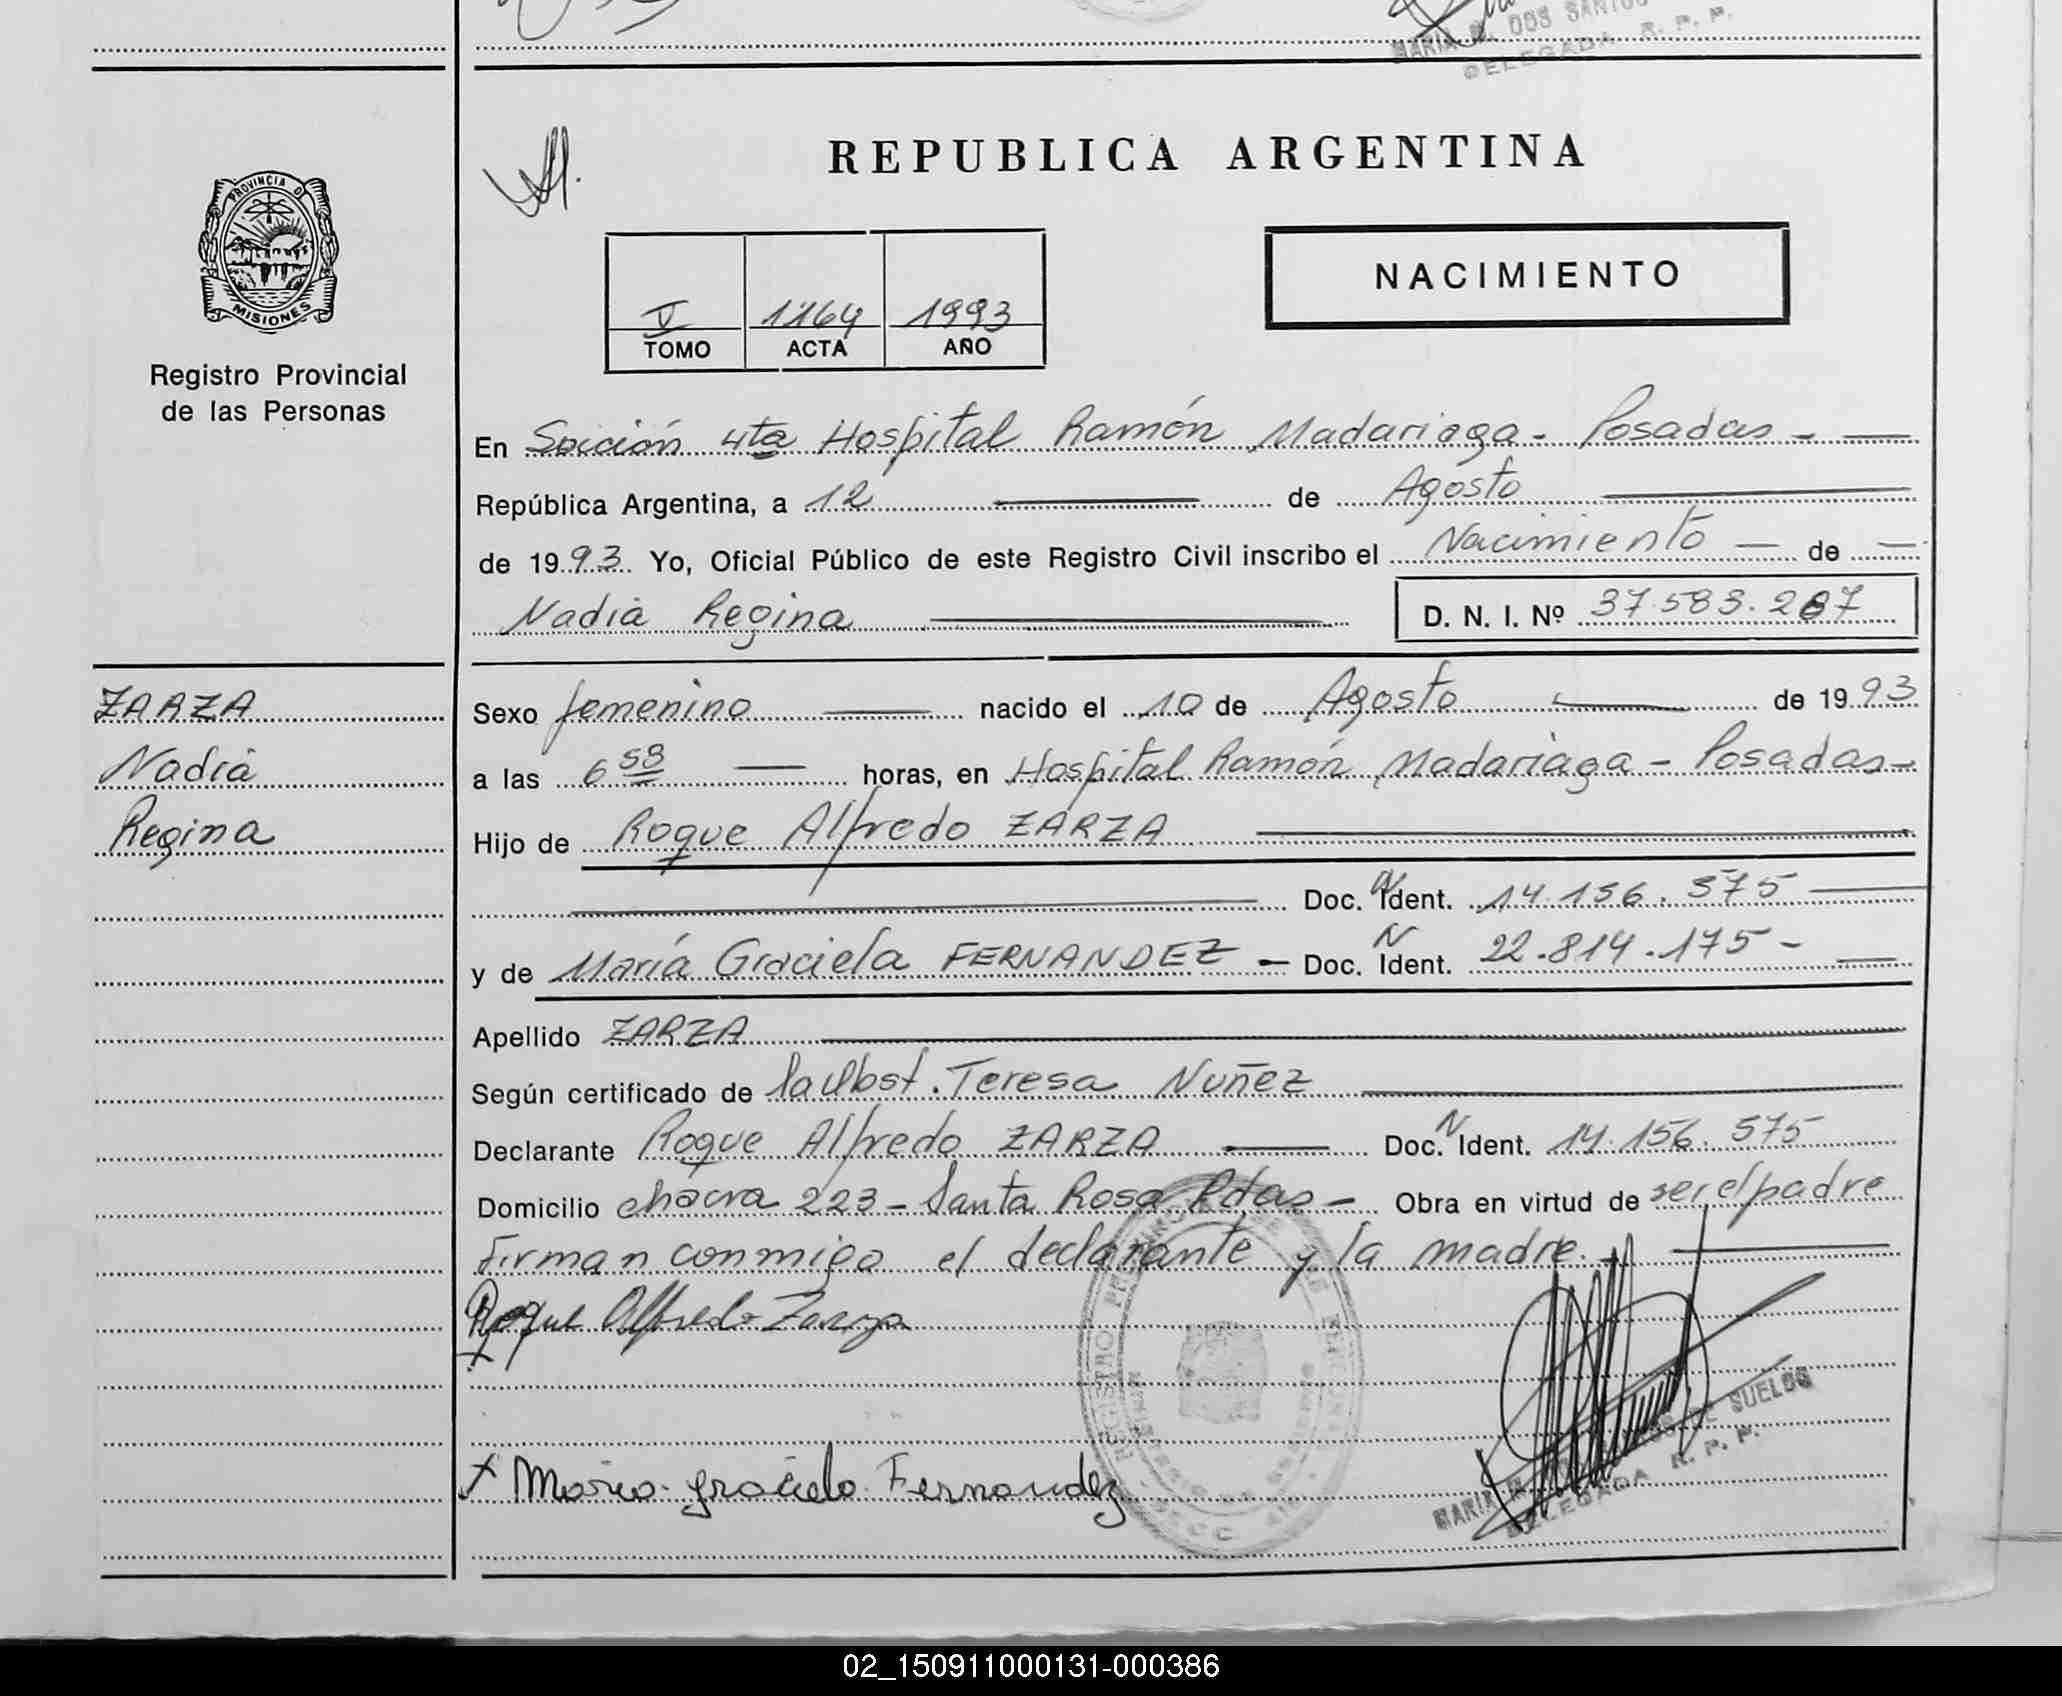 MARIA M. DOS SANTOS
DELEGADA R. P. P.
PROVINCIA DE
MISIONES
Registro Provincial
de las Personas
REPUBLICA ARGENTINA
NACIMIENTO
V 1164 1993
TOMO ACTA AÑO
En Sección 4ta Hospital Ramón Madariaga - Posadas -
República Argentina, a 12 de Agosto
de 1993 Yo, Oficial Público de este Registro Civil inscribo el Nacimiento de
Nadia Regina D. N. I. Nº 37.583.267
ZARZA
Nadia
Regina
Sexo femenino nacido el 10 de Agosto de 1993
a las 6 58 horas, en Hospital Ramón Madariaga - Posadas -
Hijo de Roque Alfredo ZARZA
Doc. N Ident. 14.156.575
y de María Graciela FERNANDEZ - Doc. N Ident. 22.814.175 -
Apellido ZARZA
Según certificado de la Obst. Teresa Nuñez
Declarante Roque Alfredo ZARZA Doc. N Ident. 14.156.575
Domicilio chacra 223 - Santa Rosa Pdas - Obra en virtud de ser el padre
Firman conmigo el declarante y la madre.
Roque Alfredo Zarza
REGISTRO PROVINCIAL DE LAS PERSONAS
MARIA M. DOS SANTOS DE SUELOS
DELEGADA R. P. P.
Maria Graciela Fernandez
02_150911000131-000386